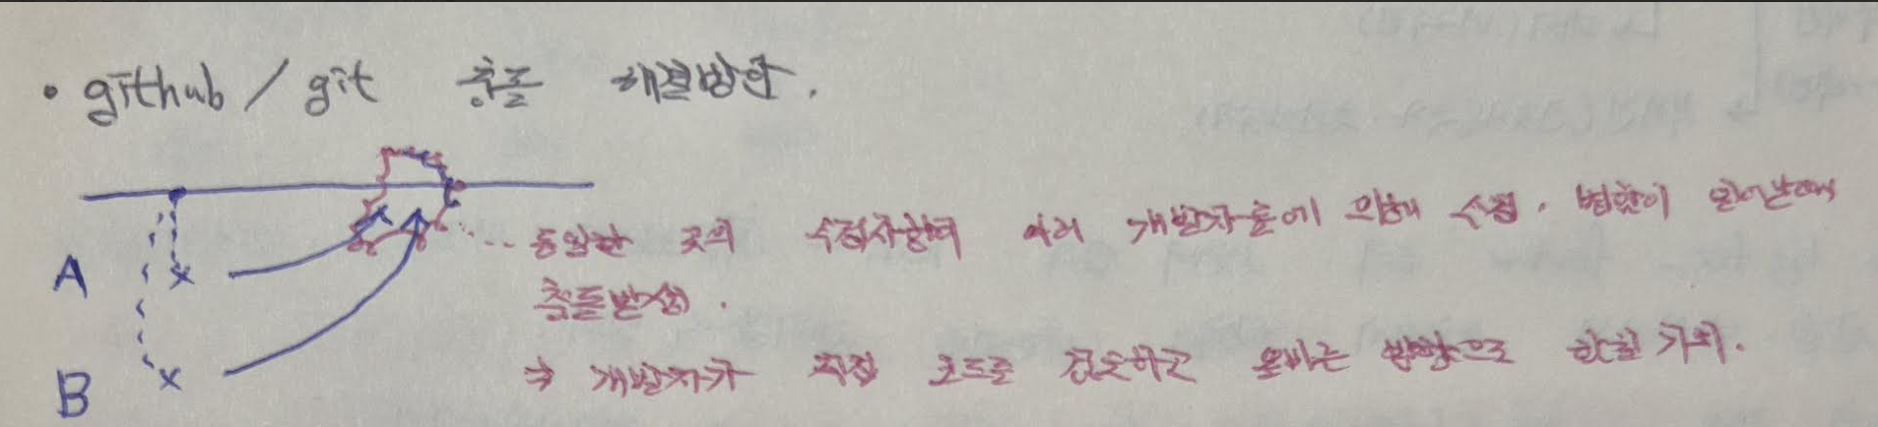 • github / git 충돌 해결방안.
A
B
동일한 코의 수정사항이 여러 개발자들에 의해 수정, 변환이 일어날때
충돌발생.
⇒ 개발자가 직접 코드를 검토하고 올바른 방향으로 합칠